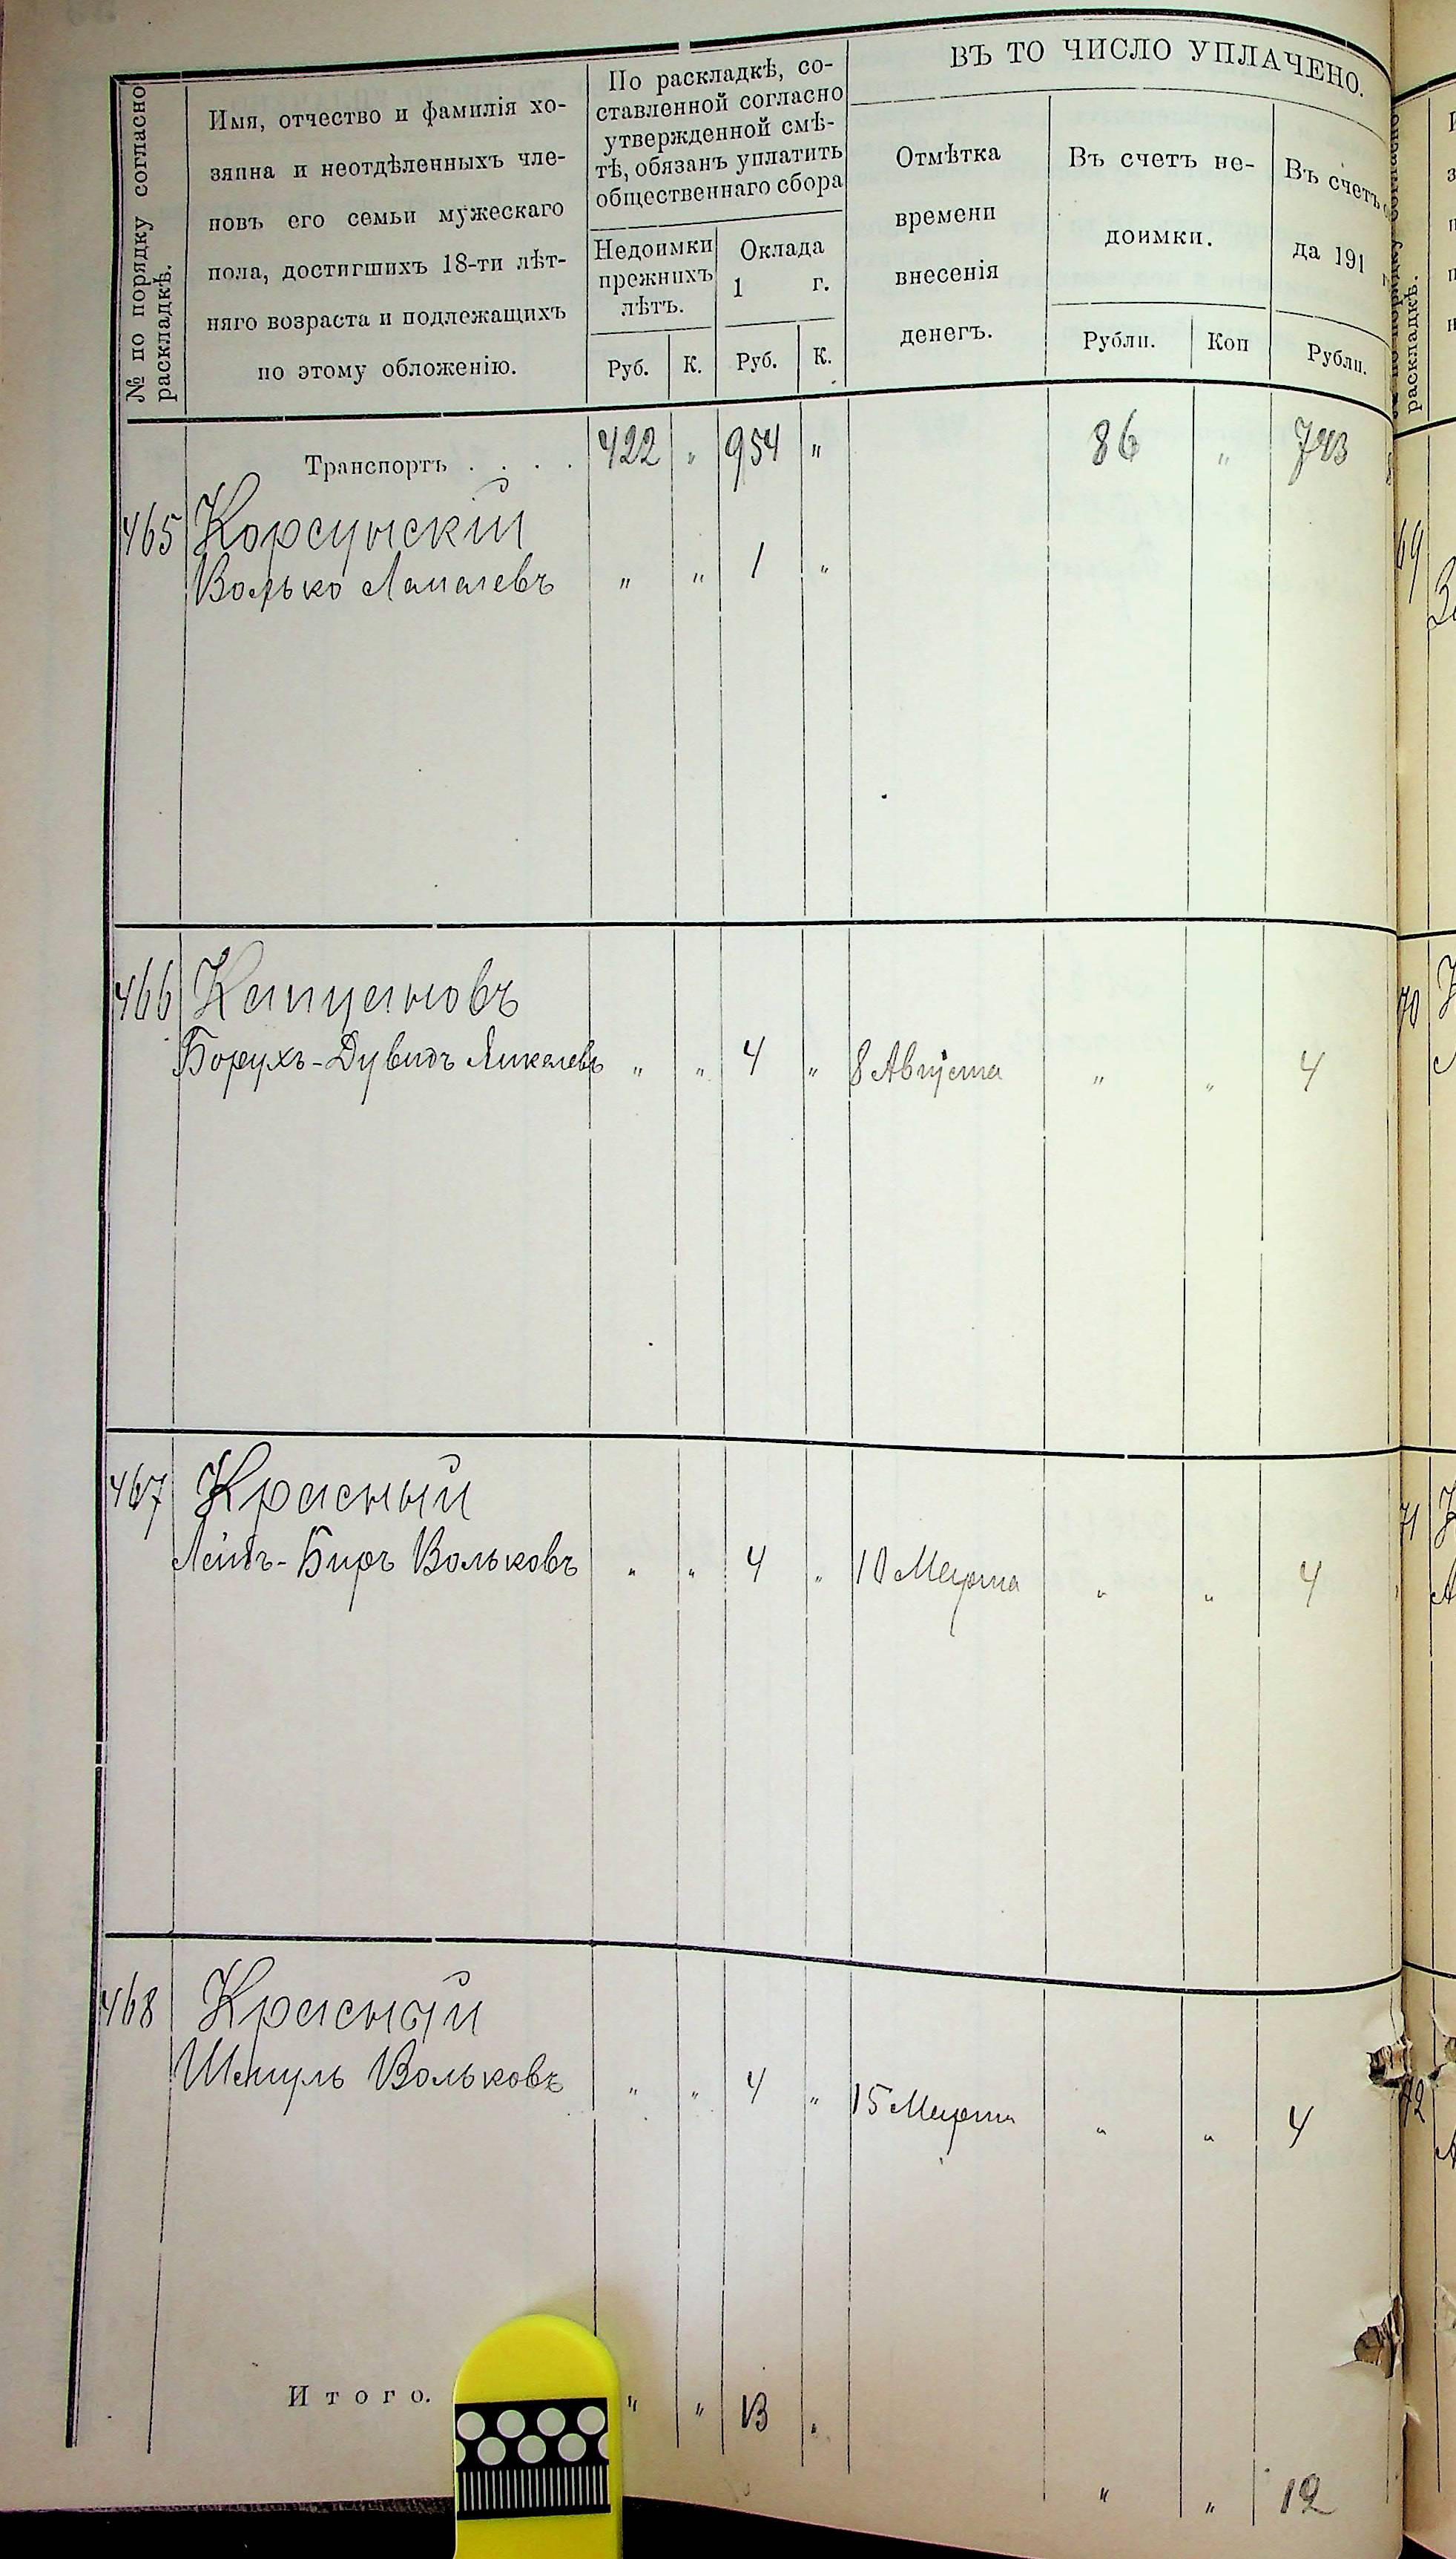 № по порядку согласно
раскладкѣ.
Имя, отчество и фамилія хо-
зяина и неотдѣленныхъ чле-
новъ его семьи мужескаго
пола, достигшихъ 18-ти лѣт-
няго возраста и подлежащихъ
по этому обложенію.
По раскладкѣ, со-
ставленной согласно
утвержденной смѣ-
тѣ, обязанъ уплатить
общественнаго сбора
Недоимки
прежнихъ
лѣтъ.
Оклада
1 г.
Руб. К. Руб. К.
ВЪ ТО ЧИСЛО УПЛАЧЕНО.
Отмѣтка
времени
внесенія
денегъ.
Въ счетъ не-
доимки.
Рубли. Коп
Въ счетъ
да 191
Рубли.
Транспортъ . . . . 422 " 954 " 86 " 743
465 Корсунскій
Волько " " 1 "
466 Капцановъ
Борухъ-Дувидъ Янкелевъ " " 4 " 8 Августа " " 4
467 Красный
Лейбъ-Биръ Вольковъ " " 4 " 10 Марта " " 4
468 Красный
Шмуль Вольковъ " " 4 " 15 Марта " " 4
Итого. " " 13 "
" " 12